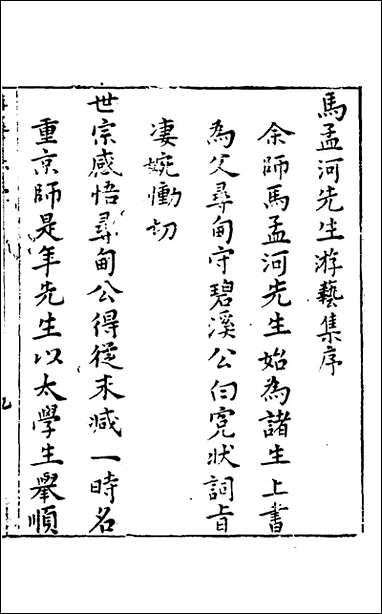 馬孟河先生游藝集序
余師馬孟河先生始為諸生上書
為父尋甸守碧溪公白寃狀詞旨
淒婉慟切
世宗感悟尋甸公得從末減一時名
重京師是年先生以太學生舉順